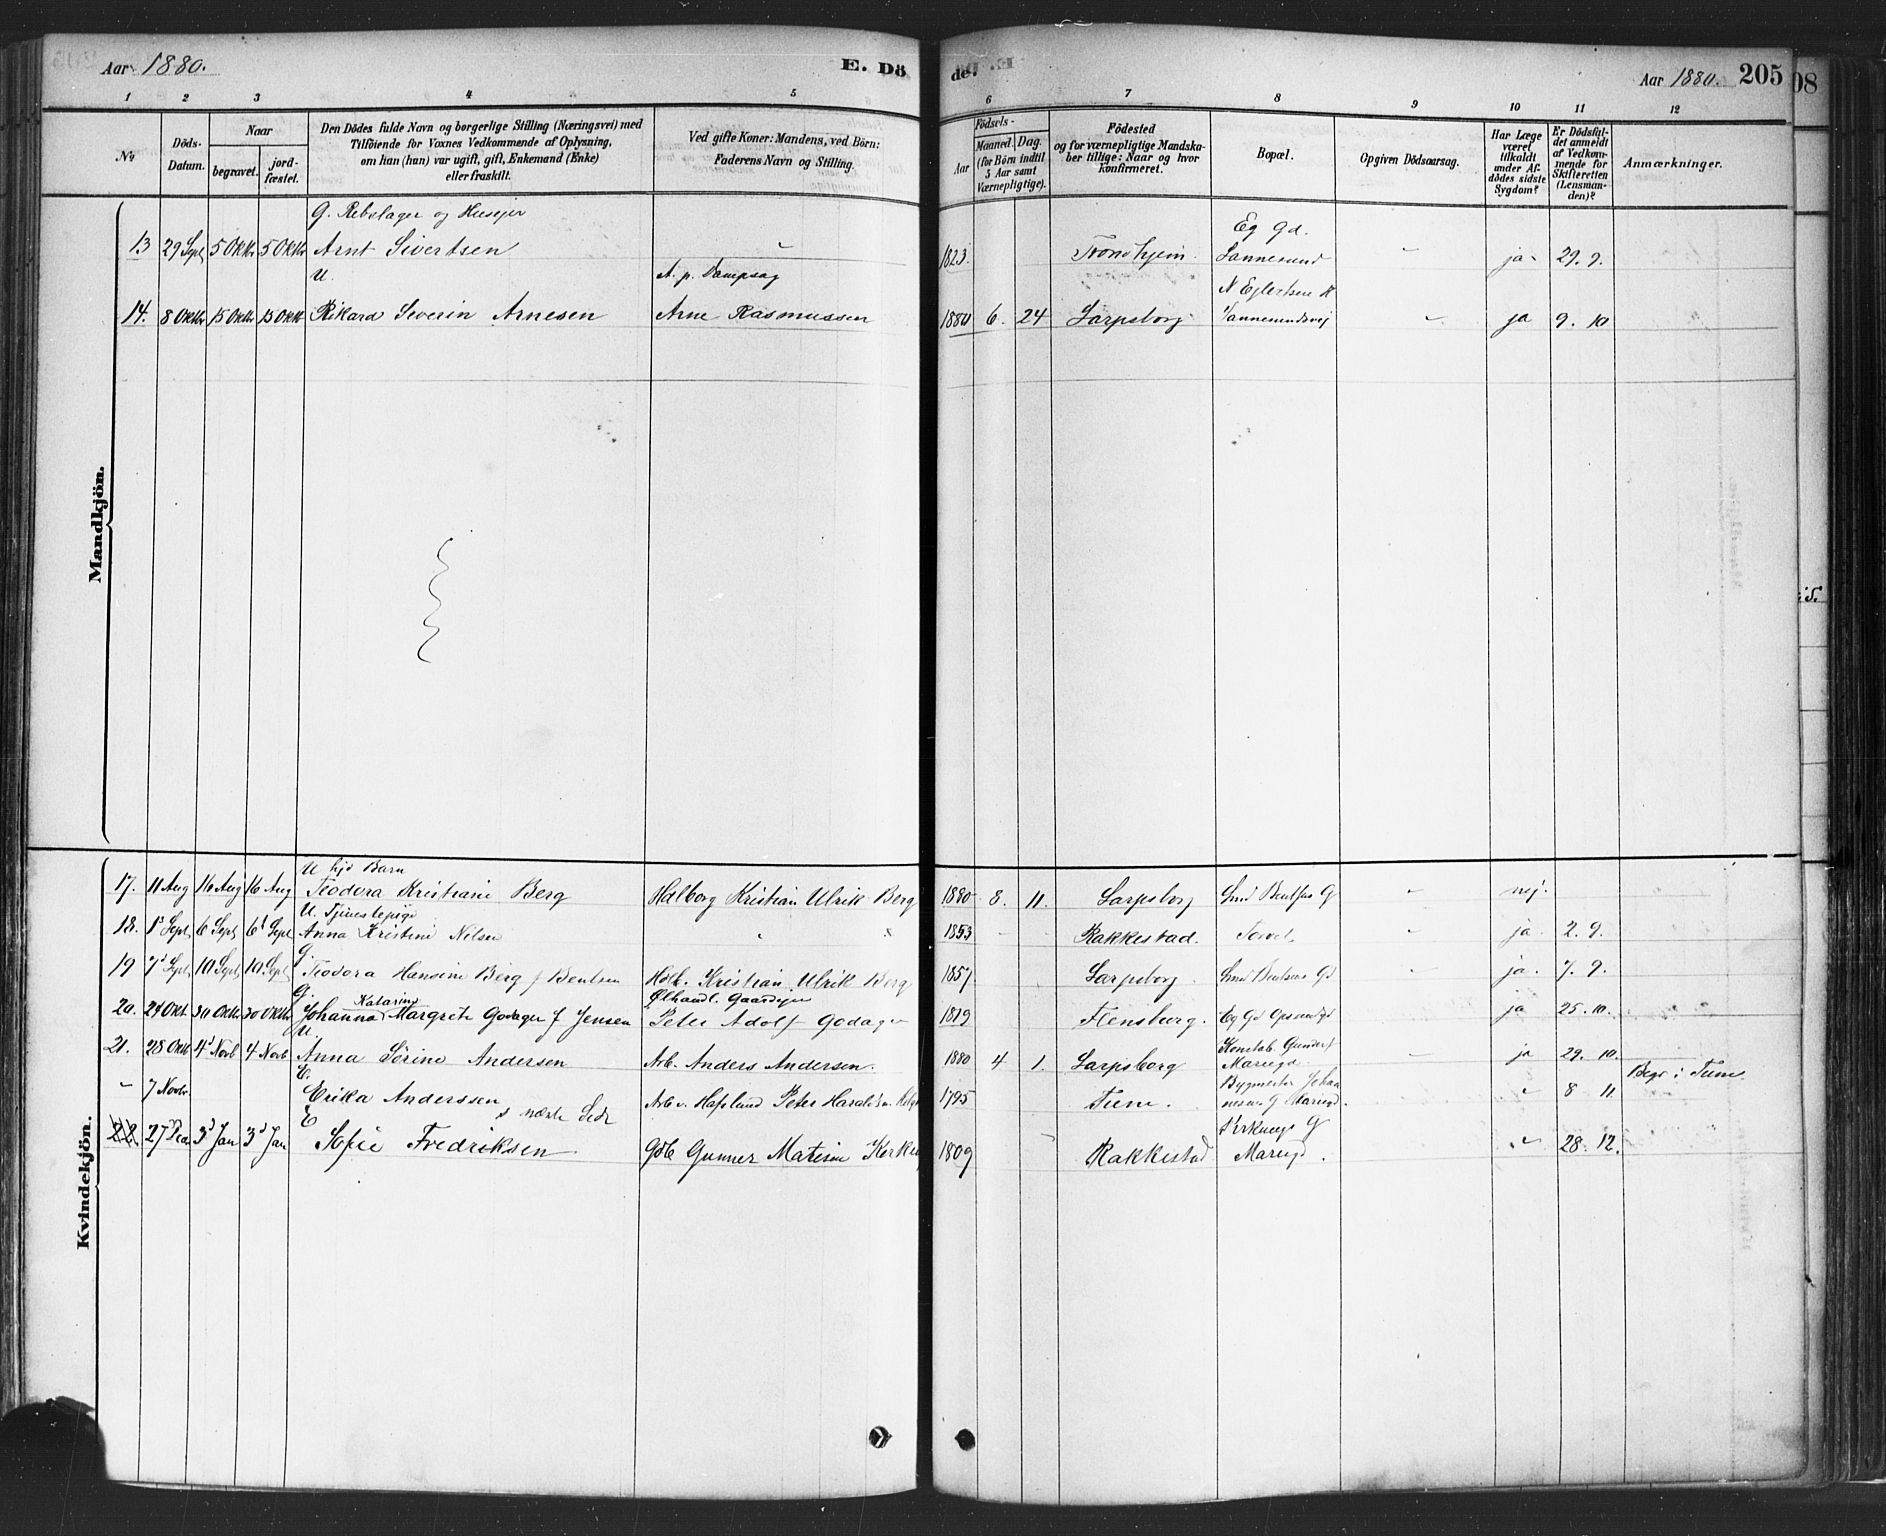 Aar 1880. E. Dö
de. Aar 1880. 205
1 2 3 4 5 6 7 8 9 10 11 12
No
Döds-Datum.
Naar
begravet.
jord-fæstet.
Den Dödes fulde Navn og borgerlige Stilling (Næringsvei) med
Tilföiende for Voxnes Vedkommende af Oplysning,
om han (hun) var ugift, gift, Enkemand (Enke)
eller fraskilt.
Ved gifte Koner: Mandens, ved Börn:
Faderens Navn og Stilling.
Födsels-
Aar
Maaned. Dag.
(for Börn indtil
5 Aar samt
Værnepligtige).
Födested
og for værnepligtige Mandska-
ber tillige: Naar og hvor
konfirmeret.
Bopæl.
Opgiven Dödsaarsag.
Har Læge
været
tilkaldt
under Af-
dödes sidste
Sygdom?
Er Dödsfal-
det anmeldt
af Vedkom-
mende for
Skifteretten
(Lensman-
den)?
Anmærkninger.
Mandkjön.
G. Rebslager og Huseier
Eg Gd.
13 29 Sept 5 Oktbr 5 Oktbr Arnt Sivertsen " 1823. Trondhjem. Sannesund " ja 29. 9.
U. A. p. Dampsag
14. 8 Oktbr 15 Oktbr 15 Oktbr Rikard Severin Arnesen Arne Rasmussen 1880 6. 24 Sarpsborg Sannesundsvej " ja 9. 10
Kvindekjön.
U Barn
17. 11 Aug 16 Aug 16 Aug Teodora Kristiane Berg Halborg Kristian Ulrik Berg 1880 8. 11. Sarpsborg " nej.
U. Tjenestepige
18. 1 Sept 6 Sept 6 Sept Anna Kristine Nilsen " " 1853 Rakkestad. Torvet " ja. 2. 9.
G.
19 7 Sept 10 Sept 10 Sept Teodora Hansine Berg f Bentsen Kristian Ulrik Berg 1857. Sarpsborg " ja. 7. 9.
G. Katarina Ølhandl. Gaardejer
20. 24 Okt 30 Oktbr 30 Oktbr Johanna Margrete Godager f Jensen Peter Adolf Godager 1819 Flensburg. Eg Gd ja 25. 10.
U.
21. 28 Oktb 4 Novb 4 Novb Anna Sørine Andersen Arb. Anders Andersen. 1880 4 1. Sarpsborg " ja 29. 10.
E.
" 7 Novbr. Erika Anderssen Arb v. Hafslund Peter 1795 Tune. " 8 11 Begr i Tune.
E s næste Side
22. 27 Dec 3 Jan 3 Jan Sofie Fredriksen Gdb Gunner 1809 Rakkestad " 28. 12.